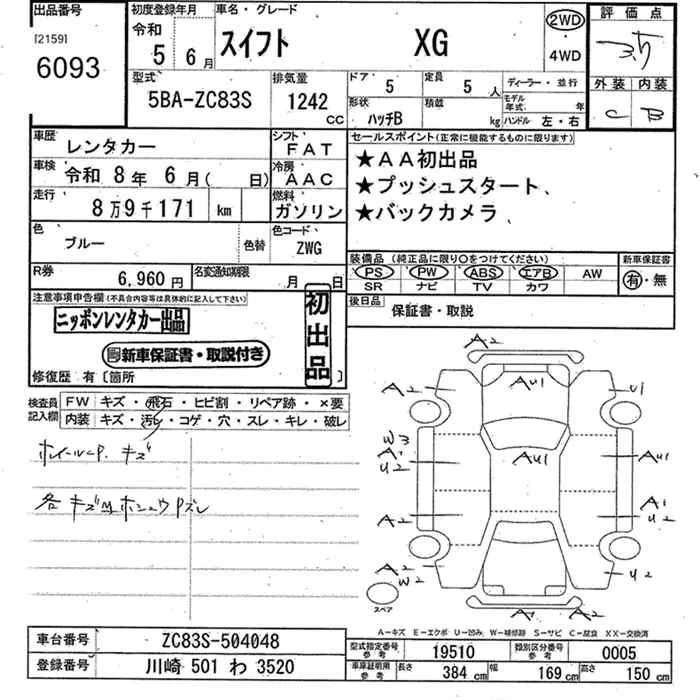 出品番号 初度登録年月 車名・グレード 評価点
[2159] 令和 スイフト XG 2WD 3.5
6093 5年 6月 4WD
外装 内装
型式 排気量 ドア 定員 ディーラー・並行
5BA-ZC83S 1242 cc 5 5人 C B
形状 積載 モデル年式 年
ハッチB kg ハンドル 左・右
車歴 レンタカー シフト FAT セールスポイント(正常に機能するものに限ります)
★AA初出品
車検 令和 8年 6月( 日) 冷房 AAC
★プッシュスタート、
走行 8万9千171 km 燃料 ガソリン
★バックカメラ
色 ブルー 色替 色コード ZWG
装備品(純正品に限り○をつけてください) 新車保証書
R券 6,960円 名変通知期限 月 日
PS PW ABS エアB AW 有・無
SR ナビ TV カワ
注意事項申告欄(不具合内容等は具体的に記入して下さい) 初出品
後日品 保証書・取説
ニッポンレンタカー出品
新車保証書・取説付き
修復歴 有〔箇所 〕
検査員記入欄 FW キズ・飛石・ヒビ割・リペア跡・×要
内装 キズ・汚レ・コゲ・穴・スレ・キレ・破レ
キズ
各キズ
A2
A2 AU1 U1
W3
A1 AU1 AU1
U2
A2 A1
U2
A2 U2
W2
スペア A1 A2
A-キズ E-エクボ U-凹み W-補修跡 S-サビ C-腐食 XX-交換済
車台番号 ZC83S-504048
型式指定番号 参考 19510 類別区分番号 参考 0005
登録番号 川崎 501 わ 3520
車庫証明用 参考 長さ 384 cm 幅 169 cm 高さ 150 cm